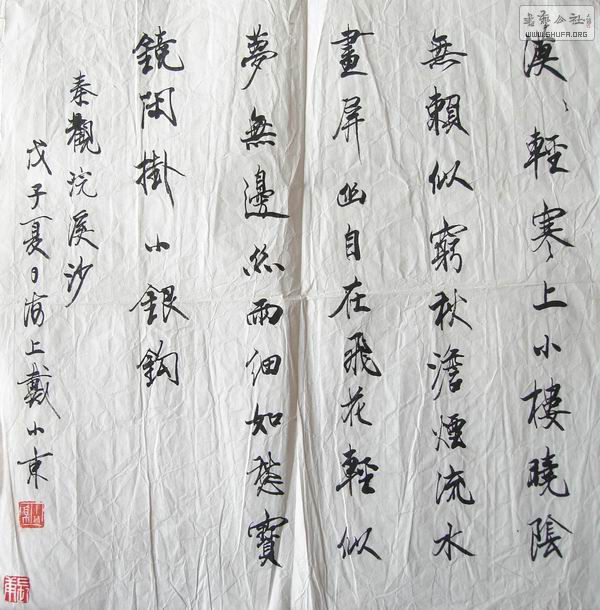 漠〻輕寒上小樓曉陰
無賴似窮秋澹煙流水
畫屏幽自在飛花輕似
夢無邊絲雨細如愁寶
鏡閑掛小銀鈎
秦觀浣溪沙
戊子夏日海上戴小東
書藝公社
WWW.SHUFA.ORG